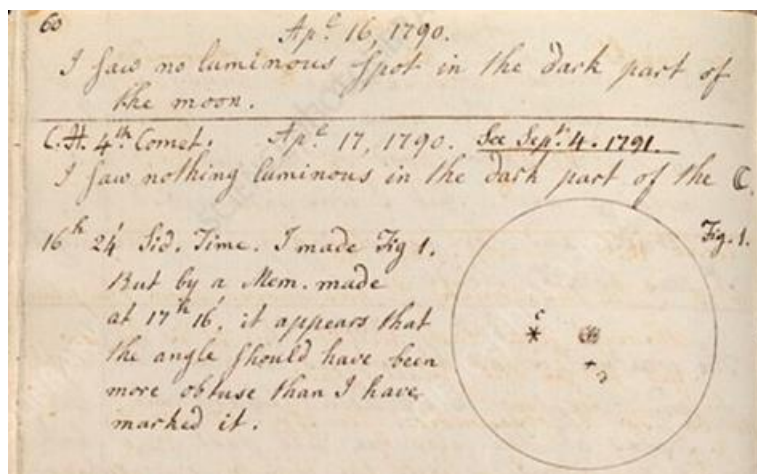 60
Apl. 16, 1790.
I saw no luminous spot in the dark part of
the moon.
C.H. 4th Comet. Apl 17, 1790. See Sept. 4. 1791.
I saw nothing luminous in the dark part of the ☾.
16h 24' Sid. Time. I made Fig 1.
But by a Mem. made
at 17h 16', it appears that
the angle should have been
more obtuse than I have
marked it.
Fig. 1.
c